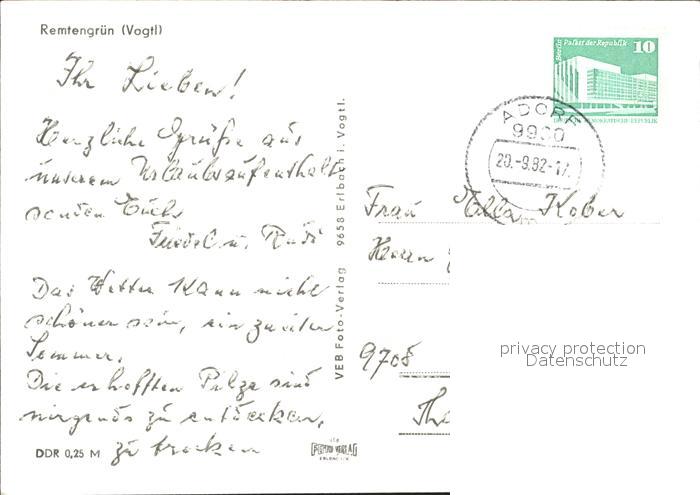 Remtengrün (Vogtl)
Ihr Lieben!
Herzliche Grüße aus
unserem Urlaubsaufenthalt
senden Euch
Friedel u. Rudi
Das Wetter kann nicht
schöner sein, ein zweiter
Sommer.
Die erhofften Pilze sind
nirgends zu entdecken,
zu trocken
DDR 0,25 M
VEB Foto-Verlag 9658 Erlbach i. Vogtl.
Berlin Palast der Republik
10
ADORF
9900
20.-9.82-17
Frau Ella Kober
Herrn
9708
privacy protection
Datenschutz